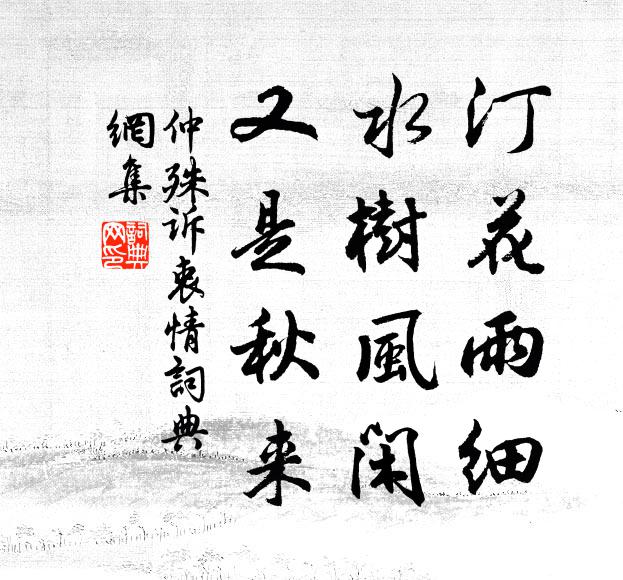 汀花雨細
水樹風閑
又是秋来
仲殊诉衷情詞典
網集
詞典网印